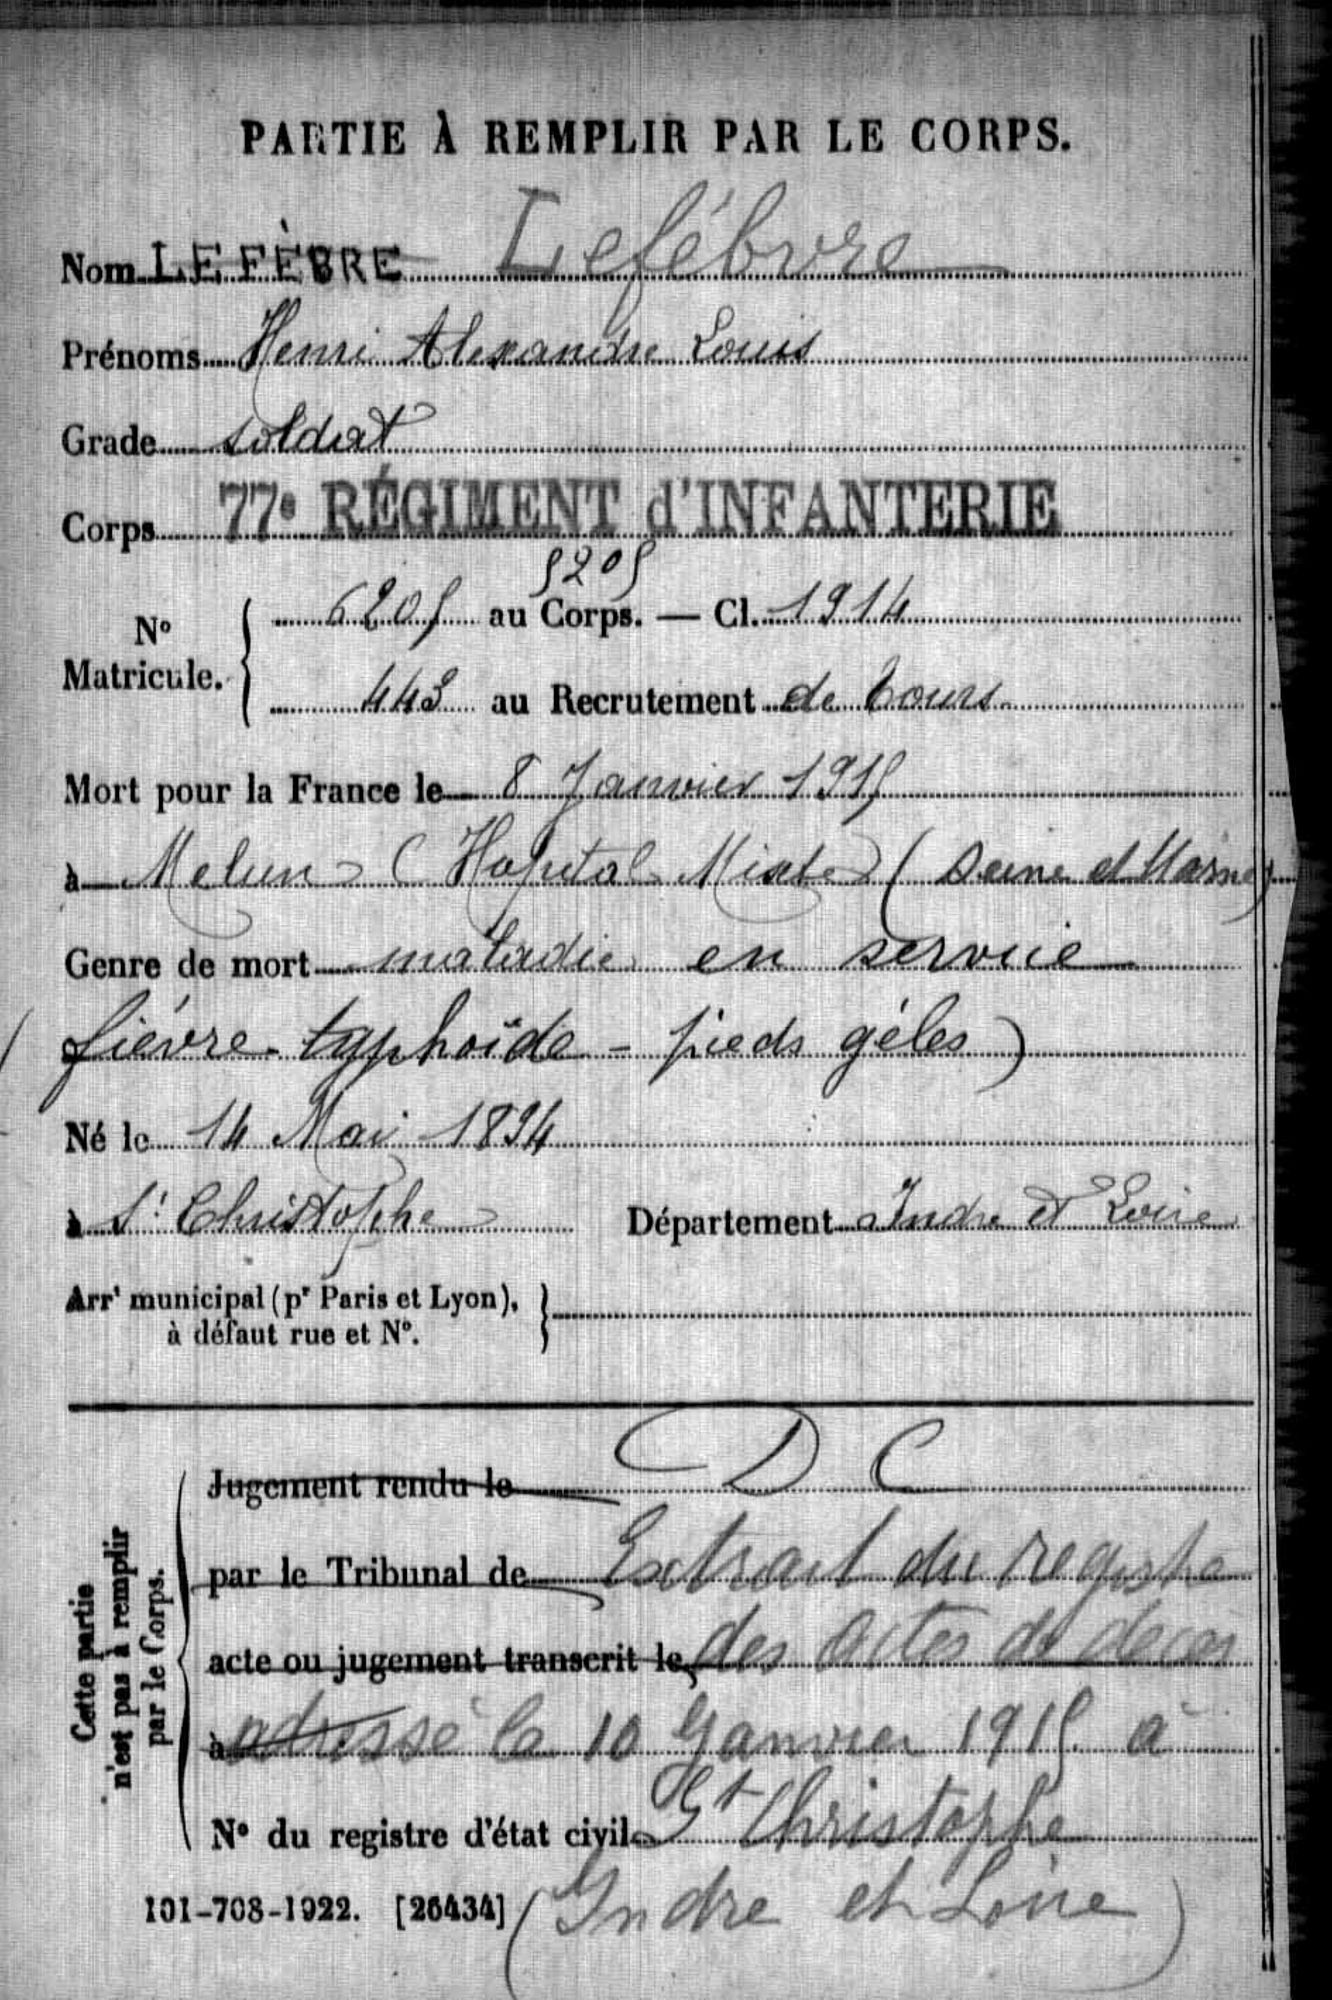 PARTIE À REMPLIR PAR LE CORPS.
Nom LEFÈBRE Lefébvre
Prénoms Henri Alexandre Louis
Grade soldat
Corps 77e RÉGIMENT d'INFANTERIE
5205
N° Matricule. 6205 au Corps. — Cl. 1914
443 au Recrutement de Tours
Mort pour la France le 8 Janvier 1915
à Melun (Hopital Mixte) (Seine et Marne)
Genre de mort maladie en service
(fièvre typhoïde - pieds gélés)
Né le 14 Mai 1894
à St Christophe Département Indre et Loire
Arrt municipal (pr Paris et Lyon),
à défaut rue et N°.
Cette partie
n'est pas à remplir
par le Corps.
Jugement rendu le D C
par le Tribunal de Extrait du registre
acte ou jugement transcrit le des actes de décès
à adressé le 10 Janvier 1915 à
N° du registre d'état civil St Christophe
101-708-1922. [26434] (Indre et Loire)